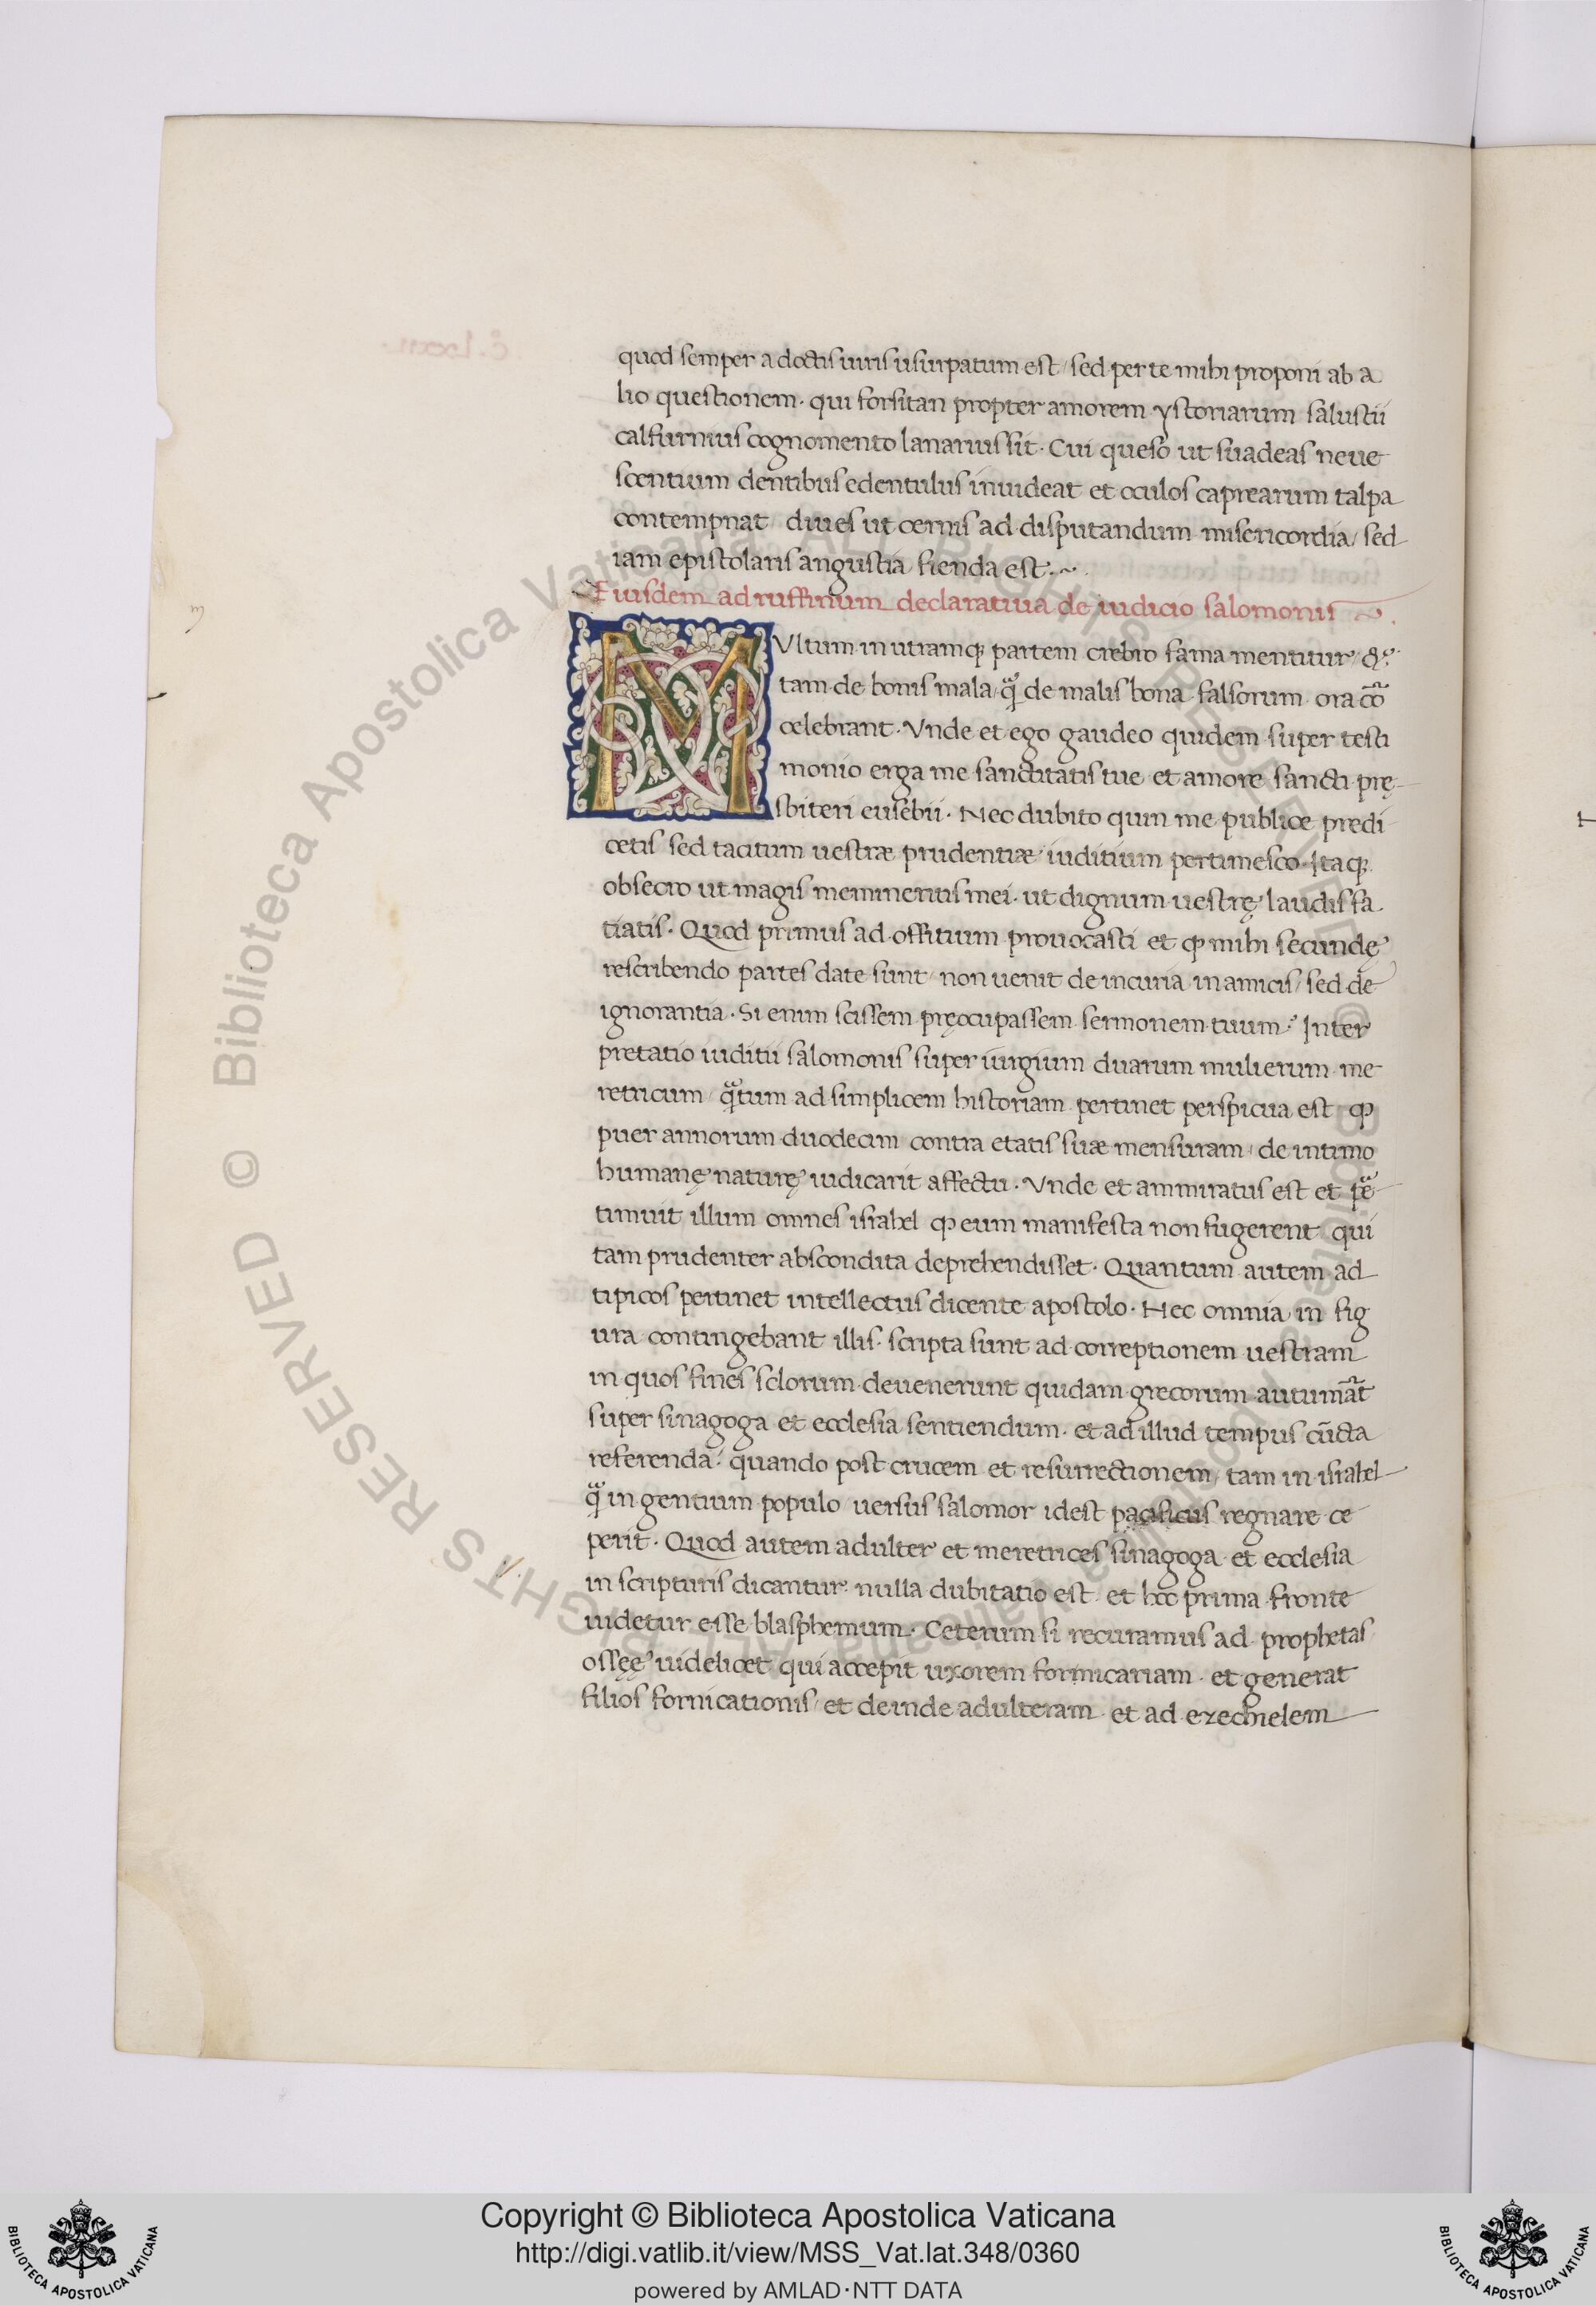 quod semper a doctis uiris usurpatum est / sed per te mihi proponi ab a
lio questionem · qui forsitan propter amorem ystoriarum salustii
calfurnius cognomento lanarius sit · Cui queso ut suadeas ne ue
scentium dentibus edentulus inuideat et oculos caprearum talpa
contempnat diues ut cernis ad disputandum misericordia / sed
iam epistolaris angustia fienda est · ~
Eiusdem ad ruffinum declaratiua de iudicio salomonis ~ .
MVltum in utramq; partem crebro fama mentitur /
tam de bonis mala / qͣ de malis bona falsorum ora co̅
celebrant · Vnde et ego gaudeo quidem super testi
monio erga me sanctitatis tue et amore sancti prę
sbiteri eusebii · Nec dubito quin me publice predi
cetis sed tacitum uestræ prudentiæ iuditium pertimesco · Itaq;
obsecro ut magis memineritis mei · ut dignum uestrę laudis fa
tiatis · Quod primus ad offitium prouocasti et ꝙ mihi secundę
rescribendo partes date sunt / non uenit de incuria in amicis / sed de
ignorantia · Si enim scissem pręocupassem sermonem tuum · Inter
pretatio iuditii salomonis super iurgium duarum mulierum me
retricum / qͣtum ad simplicem historiam pertinet perspicua est ꝙ
puer annorum duodecim contra etatis suæ mensuram / de intimo
humanę naturę iudicarit affectu · Vnde et ammiratus est et
timuit illum omnes israhel ꝙ eum manifesta non fugerent qui
tam prudenter abscondita deprehendisset · Quantum autem ad
tipicos pertinet intellectus dicente apostolo · Hec omnia in fig
ura contingebant illis · scripta sunt ad correptionem uestram
in quos fines sclorum deuenerunt quidam grecorum autuma̅t
super sinagoga et ecclesia sentiendum · et ad illud tempus cu̅cta
referenda · quando post crucem et resurrectionem / tam in israhel
qͣ in gentium populo uersus salomor idest pacificus regnare ce
perit · Quod autem adulter et meretrices sinagoga et ecclesia
in scripturis dicantur nulla dubitatio est et hoc prima fronte
uidetur esse blasphemum · Ceterum si recuramus ad prophetas
ossęę uidelicet qui accepit uxorem fornicariam · et generat
filios fornicationis / et deinde adulteram et ad ezechielem
Copyright © Biblioteca Apostolica Vaticana
http://digi.vatlib.it/view/MSS_Vat.lat.348/0360
powered by AMLAD·NTT DATA
BIBLIOTECA APOSTOLICA VATICANA
BIBLIOTECA APOSTOLICA VATICANA
© Biblioteca Apostolica Vaticana ALL RIGHTS RESERVED